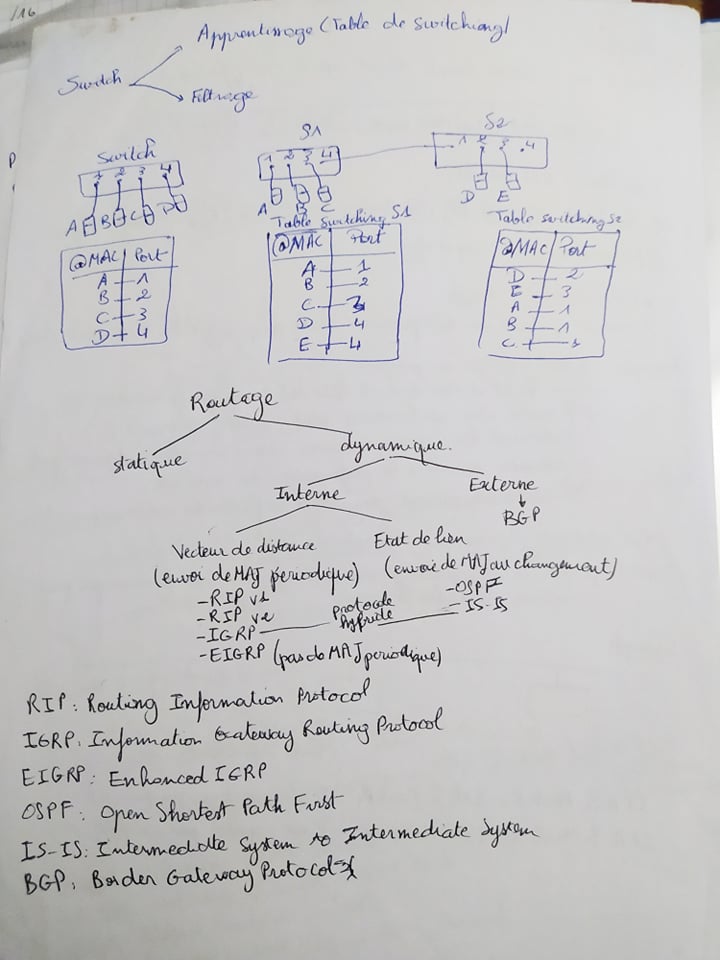 /16
Apprentissage (Table de switching)
Switch
Filtrage
Switch
1 2 3 4
A B C D
@MAC Port
A 1
B 2
C 3
D 4
S1
1 2 3 4
A B C
Table switching S1
@MAC Port
A 1
B 2
C 3
D 4
E 4
S2
1 2 3 4
D E
Table switching S2
@MAC Port
D 2
E 3
A 1
B 1
C 1
Routage
statique
dynamique.
Interne
Externe
BGP
Vecteur de distance
(envoi de MAJ periodique)
-RIP v1
-RIP v2
-IGRP
-EIGRP (pas de MAJ periodique)
protocole
hybride
Etat de lien
(envoie de MAJ au changement)
-OSPF
-IS-IS
RIP: Routing Information Protocol
IGRP: Information Gateway Routing Protocol
EIGRP: Enhanced IGRP
OSPF: Open Shortest Path First
IS-IS: Intermediate System to Intermediate System
BGP: Border Gateway Protocol